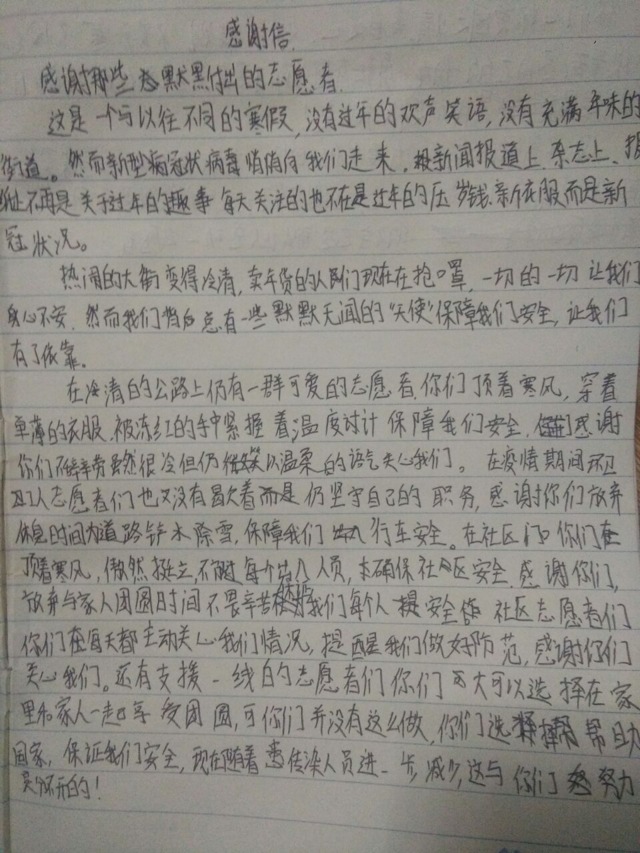 感谢信
感谢那些默默付出的志愿者
这是一个与以往不同的寒假,没有过年的欢声笑语,没有充满年味的
街道。然而新型病冠状病毒悄悄向我们走来,新闻报道上、杂志上、报
不再是关于过年的趣事 每天关注的也不在是过年的压岁钱、新衣服而是新
冠状况。
热闹的大街变得冷清,卖年货的人们现在在抢口罩,一切的一切让我们
身心不安,然而我们背后总有一些默默无闻的"天使"保障我们安全,让我们
有了依靠。
在冷清的公路上仍有一群可爱的志愿者,你们顶着寒风,穿着
单薄的衣服,被冻红的手中紧握着温度计 保障我们安全,感谢
你们不辞辛劳虽然很冷但仍微笑以温柔的语气关心我们。在疫情期间环卫
工人志愿者们也没有歇着而是仍坚守自己的职务,感谢你们放弃
休息时间为道路铲冰除雪,保障我们出入行车安全。在社区门口你们在
顶着寒风,傲然挺立,每个出入人员,确保社区安全,感谢你们,
放弃与家人团圆时间不畏辛苦我们每个人提安全 社区志愿者们
你们在每天都主动关心我们情况,提醒我们做好防范,感谢你们
关心我们。还有支援一线的志愿者们你们大可以选择在家
里和家人一起享受团圆,可你们并没有这么做,你们选择帮助
国家,保证我们安全,现在随着传染人员进一步减少,这与你们努力
是分不开的!